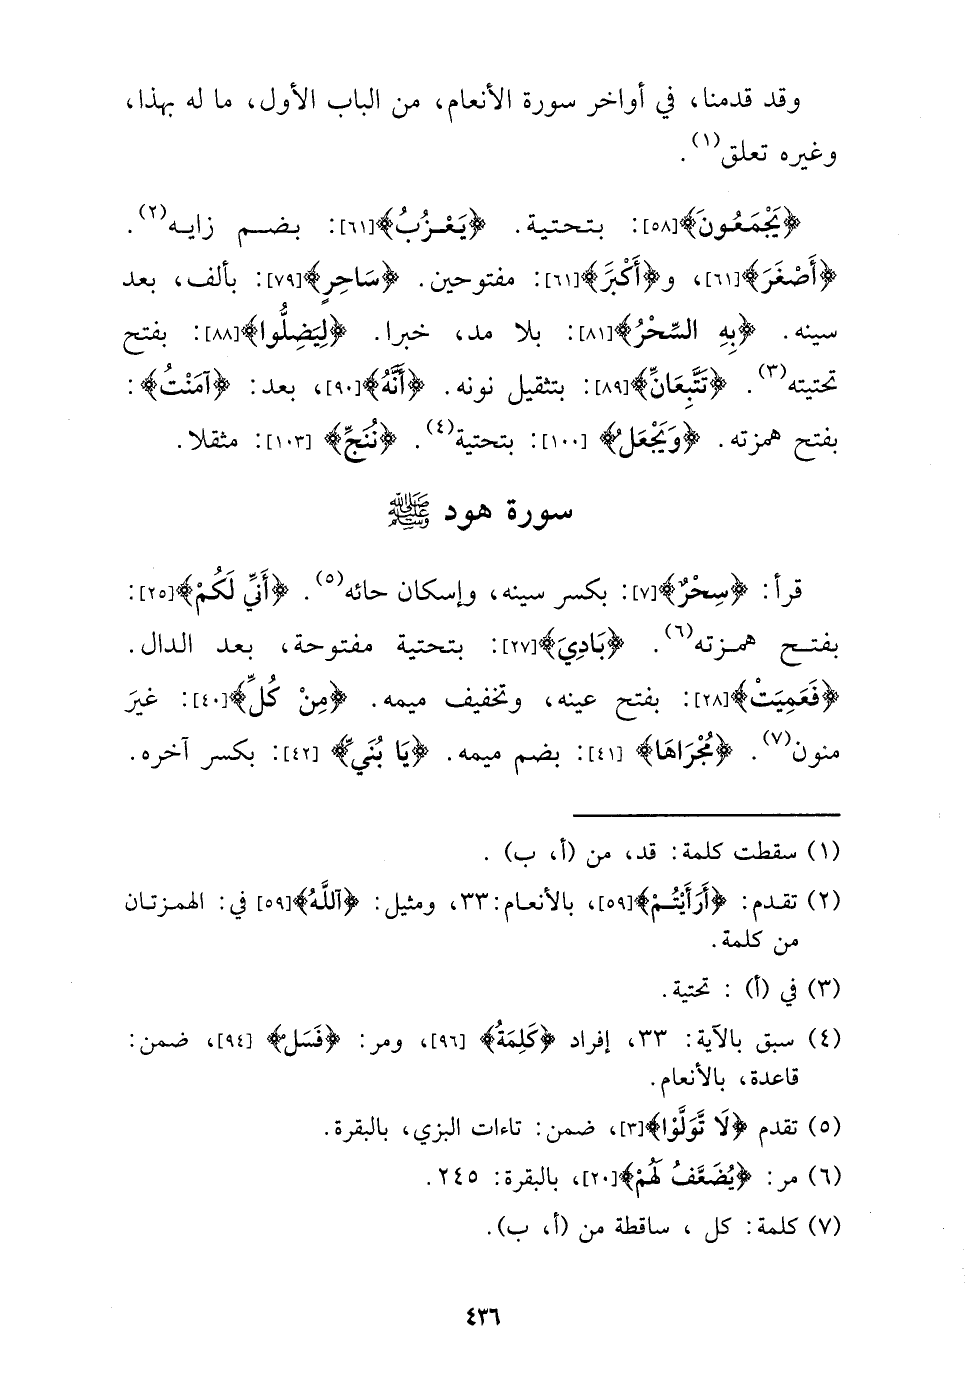 وقد قدمنا، في أواخر سورة الأنعام، من الباب الأول، ما له بهذا،
وغيره تعلق(١).
﴿يَجْمَعُونَ﴾[٥٨]: بتحتية. ﴿يَعْزُبُ﴾[٦١]: بضم زايه(٢).
﴿أَصْغَرَ﴾[٦١]، و﴿أَكْبَرَ﴾[٦١]: مفتوحين. ﴿سَاحِرٍ﴾[٧٩]: بألف، بعد
سينه. ﴿بِهِ السِّحْرُ﴾[٨١]: بلا مد، خبرا. ﴿لِيَضِلُّوا﴾[٨٨]: بفتح
تحتيته(٣). ﴿تَتَّبِعَانِّ﴾[٨٩]: بتثقيل نونه. ﴿أَنَّهُ﴾[٩٠]، بعد: ﴿آمَنْتُ﴾:
بفتح همزته. ﴿وَيَجْعَلُ﴾ [١٠٠]: بتحتية(٤). ﴿نُنَجِّ﴾ [١٠٣]: مثقلا.
سورة هود ﷺ
قرأ: ﴿سِحْرٌ﴾[٧]: بكسر سينه، وإسكان حائه(٥). ﴿أَنِّي لَكُمْ﴾[٢٥]:
بفتح همزته(٦). ﴿بَادِيَ﴾[٢٧]: بتحتية مفتوحة، بعد الدال.
﴿فَعَمِيَتْ﴾[٢٨]: بفتح عينه، وتخفيف ميمه. ﴿مِنْ كُلِّ﴾[٤٠]: غيرَ
منون(٧). ﴿مُجْرَاهَا﴾ [٤١]: بضم ميمه. ﴿يَا بُنَيِّ﴾ [٤٢]: بكسر آخره.
(١) سقطت كلمة: قد، من (أ، ب) .
(٢) تقدم: ﴿أَرَأَيْتُمْ﴾[٥٩]، بالأنعام:٣٣، ومثيل: ﴿آللَّهُ﴾[٥٩] في: الهمزتان
من كلمة.
(٣) في (أ) : تحتية.
(٤) سبق بالآية: ٣٣، إفراد ﴿كَلِمَةُ﴾ [٩٦]، ومر: ﴿فَسَلْ﴾ [٩٤]، ضمن:
قاعدة، بالأنعام.
(٥) تقدم ﴿لَا تَّوَلَّوْا﴾[٣]، ضمن: تاءات البزي، بالبقرة.
(٦) مر: ﴿يُضَعَّفُ لَهُمْ﴾[٢٠]، بالبقرة: ٢٤٥.
(٧) كلمة: كل ، ساقطة من (أ، ب).
٤٣٦